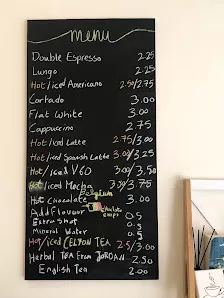 menu
Double Espresso 2.25
Lungo 2.25
Hot/iced Americano 2.50/2.75
Cortado 3.00
Flat White 3.00
Cappuccino 2.75
Hot/iced Latte 2.75/3.00
Hot/iced Spanish Latte 3.00/3.25
Hot/iced V60 3.00/3.50
Hot/iced Mocha 3.00/3.75
Belgium
Hot chocolate 3.00
Add flavour chocolate chips 0.5
Extra shot 0.5
Mineral Water 0.5
Hot/iced CELYON TEA 2.5/3.00
Herbal TEA From JORDAN 2.50
English Tea 2.00